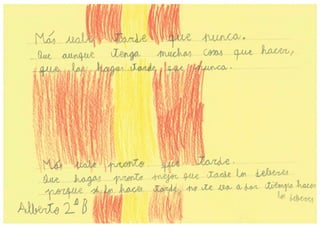 Más vale tarde que nunca.
Que aunque tenga muchas cosas que hacer,
que las hagas tarde que nunca.
Más vale pronto que tarde.
Que hagas pronto mejor que tarde los deberes
porque si lo haces tarde no te va a dar tiempo hacer
los deberes
Alberto 2º B